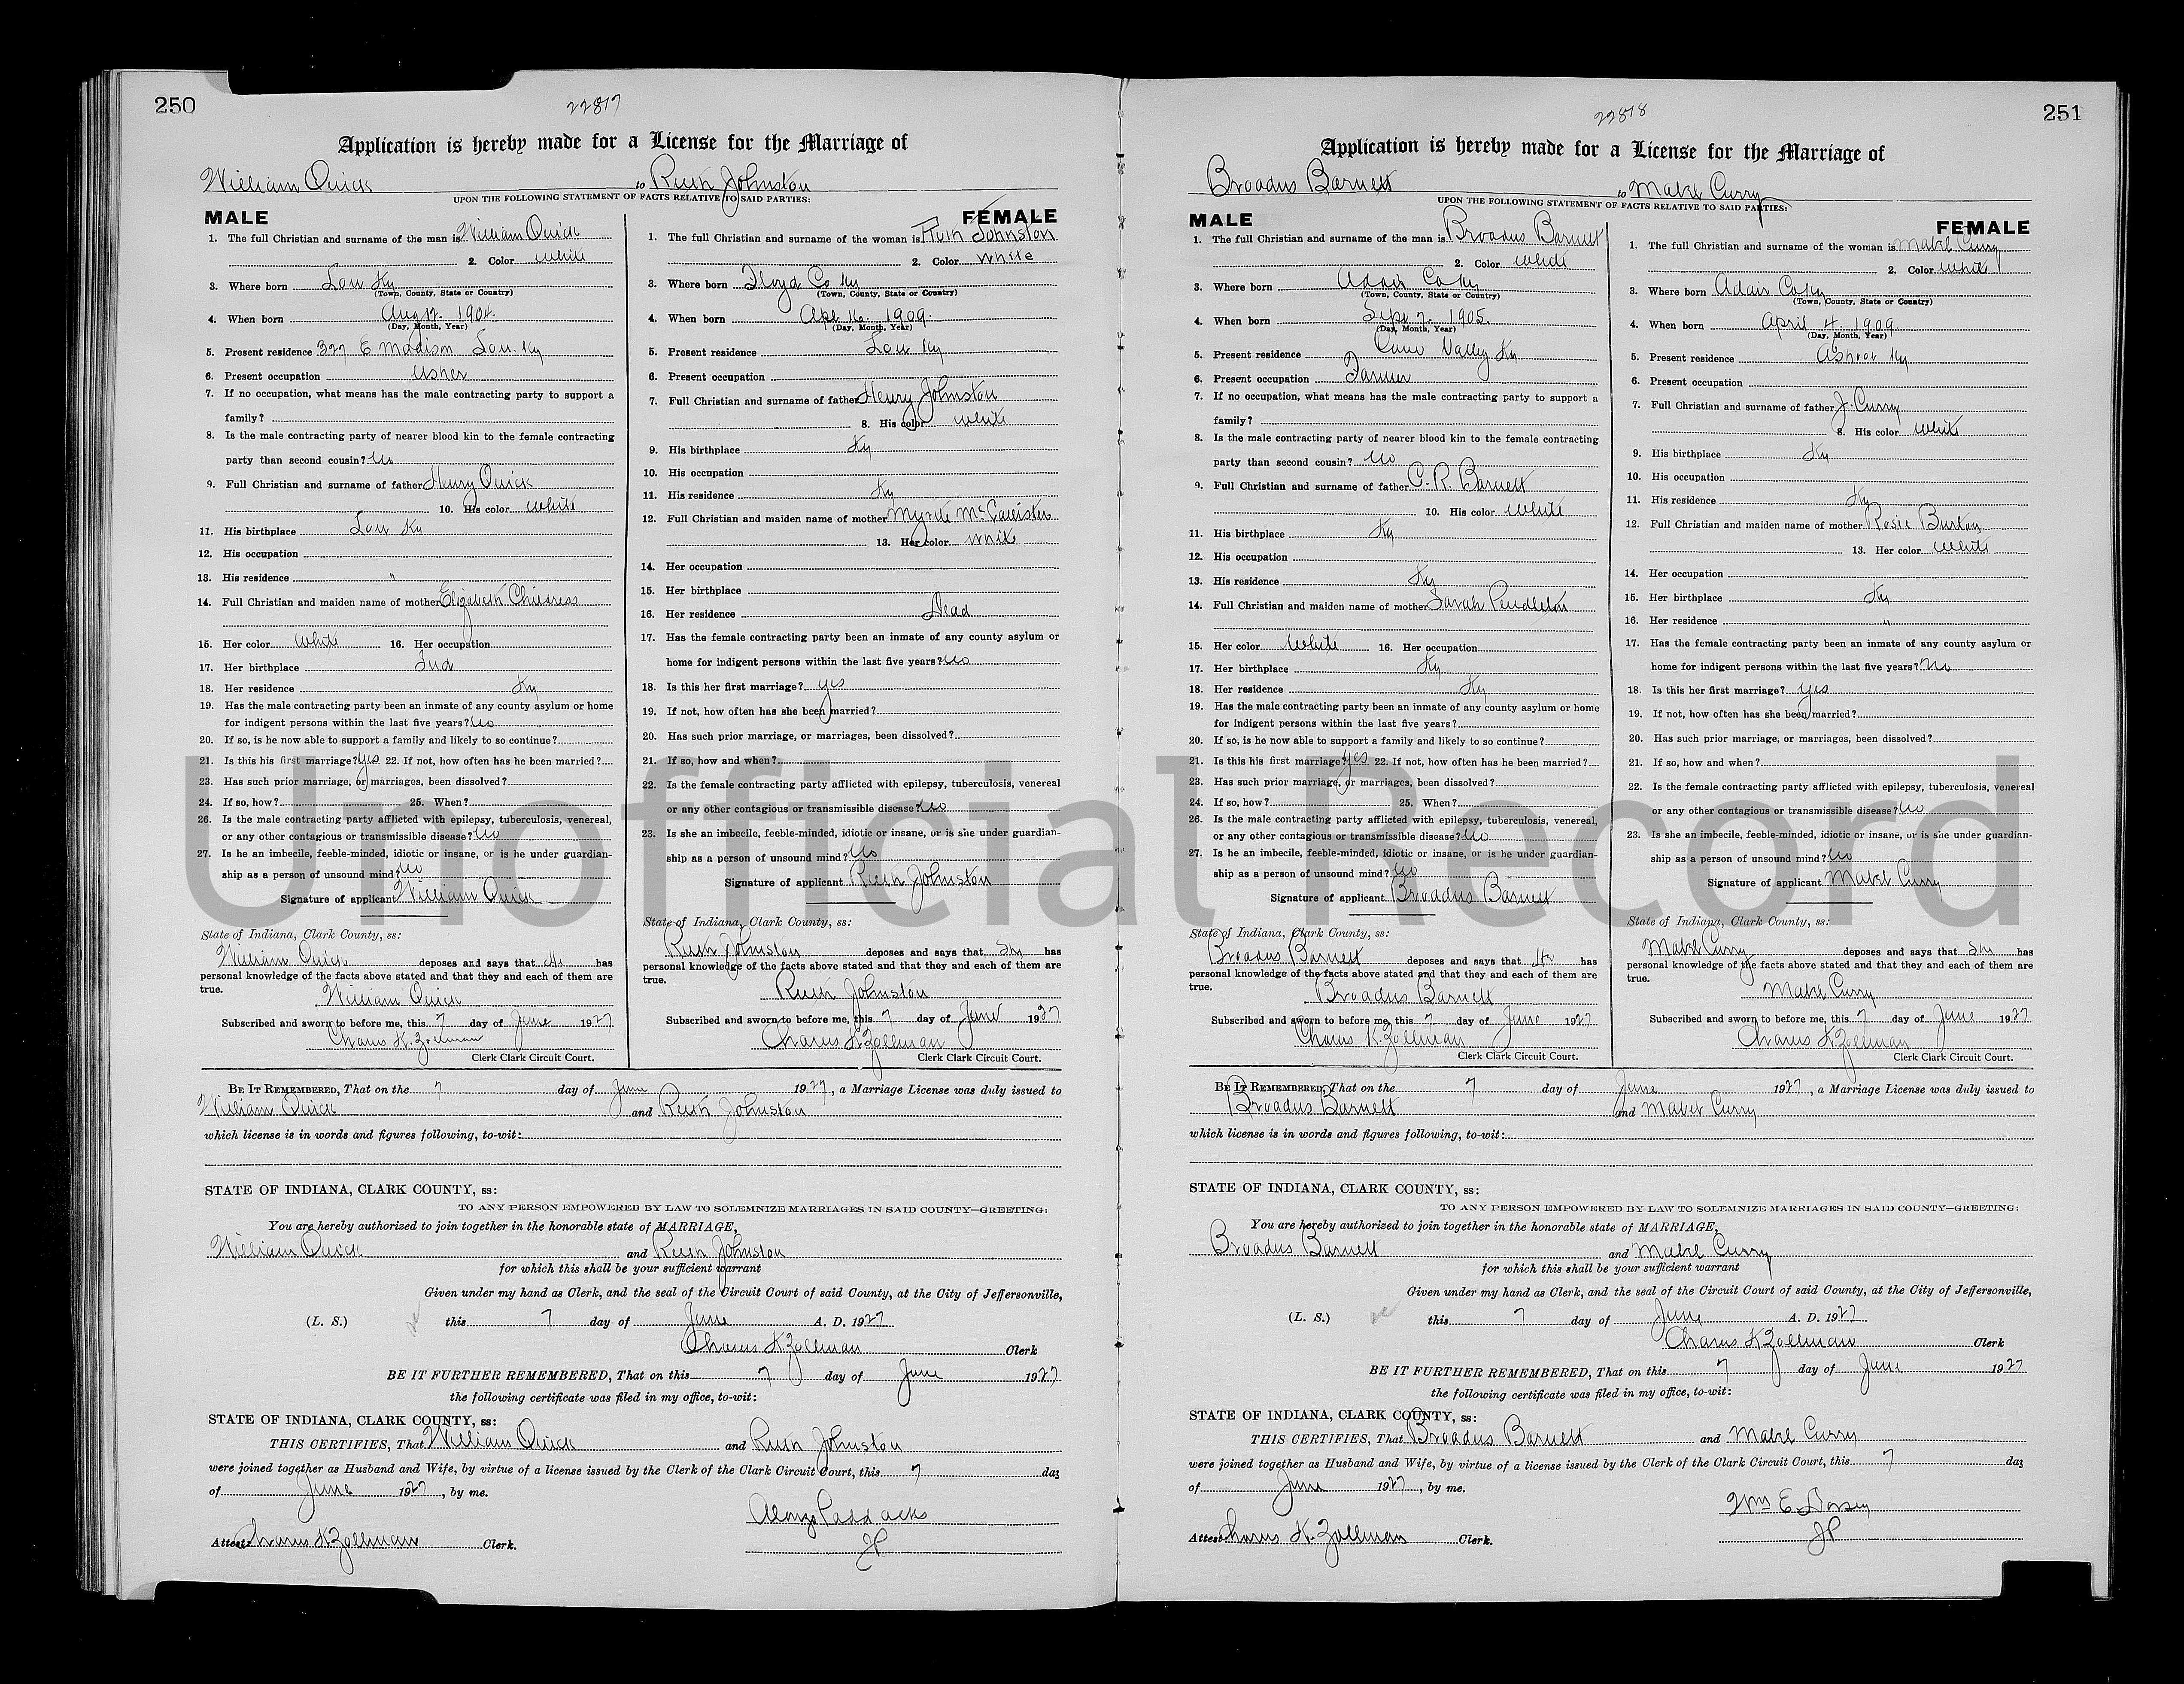 250
22817
Application is hereby made for a License for the Marriage of
William Quick to Ruth Johnston
UPON THE FOLLOWING STATEMENT OF FACTS RELATIVE TO SAID PARTIES:
MALE
1. The full Christian and surname of the man is William Quick
2. Color White
3. Where born Lou Ky
(Town, County, State or Country)
4. When born Aug 12. 1904.
(Day, Month, Year)
5. Present residence 327 E Madison Lou. Ky
6. Present occupation Usher
7. If no occupation, what means has the male contracting party to support a
family?
8. Is the male contracting party of nearer blood kin to the female contracting
party than second cousin? No
9. Full Christian and surname of father Henry Quick
10. His color White
11. His birthplace Lou Ky
12. His occupation
13. His residence "
14. Full Christian and maiden name of mother Elizabeth Childress
15. Her color White 16. Her occupation
17. Her birthplace Ind
18. Her residence Ky
19. Has the male contracting party been an inmate of any county asylum or home
for indigent persons within the last five years? No
20. If so, is he now able to support a family and likely to so continue?
21. Is this his first marriage? Yes 22. If not, how often has he been married?
23. Has such prior marriage, or marriages, been dissolved?
24. If so, how? 25. When?
26. Is the male contracting party afflicted with epilepsy, tuberculosis, venereal,
or any other contagious or transmissible disease? No
27. Is he an imbecile, feeble-minded, idiotic or insane, or is he under guardian-
ship as a person of unsound mind? No
Signature of applicant William Quick
State of Indiana, Clark County, ss:
William Quick deposes and says that he has
personal knowledge of the facts above stated and that they and each of them are
true.
William Quick
Subscribed and sworn to before me, this 7 day of June 1927
Charles K. Zollman
Clerk Clark Circuit Court.
FEMALE
1. The full Christian and surname of the woman is Ruth Johnston
2. Color White
3. Where born Floyd Co Ky
(Town, County, State or Country)
4. When born Apl 16. 1909.
(Day, Month, Year)
5. Present residence Lou Ky
6. Present occupation
7. Full Christian and surname of father Henry Johnston
8. His color White
9. His birthplace Ky
10. His occupation
11. His residence Ky
12. Full Christian and maiden name of mother Myrtle McCallister
13. Her color White
14. Her occupation
15. Her birthplace
16. Her residence Dead
17. Has the female contracting party been an inmate of any county asylum or
home for indigent persons within the last five years? No
18. Is this her first marriage? Yes
19. If not, how often has she been married?
20. Has such prior marriage, or marriages, been dissolved?
21. If so, how and when?
22. Is the female contracting party afflicted with epilepsy, tuberculosis, venereal
or any other contagious or transmissible disease? No
23. Is she an imbecile, feeble-minded, idiotic or insane, or is she under guardian-
ship as a person of unsound mind? No
Signature of applicant Ruth Johnston
State of Indiana, Clark County, ss:
Ruth Johnston deposes and says that She has
personal knowledge of the facts above stated and that they and each of them are
true.
Ruth Johnston
Subscribed and sworn to before me, this 7 day of June 1927
Charles K Zollman
Clerk Clark Circuit Court.
BE IT REMEMBERED, That on the 7 day of June 1927, a Marriage License was duly issued to
William Quick and Ruth Johnston
which license is in words and figures following, to-wit:
STATE OF INDIANA, CLARK COUNTY, ss:
TO ANY PERSON EMPOWERED BY LAW TO SOLEMNIZE MARRIAGES IN SAID COUNTY—GREETING:
You are hereby authorized to join together in the honorable state of MARRIAGE,
William Quick and Ruth Johnston
for which this shall be your sufficient warrant
Given under my hand as Clerk, and the seal of the Circuit Court of said County, at the City of Jeffersonville,
(L. S.) this 7 day of June A. D. 1927
Charles K Zollman Clerk
BE IT FURTHER REMEMBERED, That on this 7 day of June 1927
the following certificate was filed in my office, to-wit:
STATE OF INDIANA, CLARK COUNTY, ss:
THIS CERTIFIES, That William Quick and Ruth Johnston
were joined together as Husband and Wife, by virtue of a license issued by the Clerk of the Clark Circuit Court, this 7 day
of June 1927, by me.
Alonzo Paddacks
JP
Attest: Charles K Zollman Clerk.
251
22818
Application is hereby made for a License for the Marriage of
Broadus Barnett to Mabel Curry
UPON THE FOLLOWING STATEMENT OF FACTS RELATIVE TO SAID PARTIES:
MALE
1. The full Christian and surname of the man is Broadus Barnett
2. Color White
3. Where born Adair Co Ky
(Town, County, State or Country)
4. When born Sept 7. 1905.
(Day, Month, Year)
5. Present residence Cane Valley Ky
6. Present occupation Farmer
7. If no occupation, what means has the male contracting party to support a
family?
8. Is the male contracting party of nearer blood kin to the female contracting
party than second cousin? No
9. Full Christian and surname of father C. R. Barnett
10. His color White
11. His birthplace Ky
12. His occupation
13. His residence Ky
14. Full Christian and maiden name of mother Sarah Pendleton
15. Her color White 16. Her occupation
17. Her birthplace Ky
18. Her residence Ky
19. Has the male contracting party been an inmate of any county asylum or home
for indigent persons within the last five years?
20. If so, is he now able to support a family and likely to so continue?
21. Is this his first marriage? Yes 22. If not, how often has he been married?
23. Has such prior marriage, or marriages, been dissolved?
24. If so, how? 25. When?
26. Is the male contracting party afflicted with epilepsy, tuberculosis, venereal,
or any other contagious or transmissible disease? No
27. Is he an imbecile, feeble-minded, idiotic or insane, or is he under guardian-
ship as a person of unsound mind? No
Signature of applicant Broadus Barnett
State of Indiana, Clark County, ss:
Broadus Barnett deposes and says that He has
personal knowledge of the facts above stated and that they and each of them are
true.
Broadus Barnett
Subscribed and sworn to before me, this 7 day of June 1927
Charles K. Zollman
Clerk Clark Circuit Court.
FEMALE
1. The full Christian and surname of the woman is Mabel Curry
2. Color White
3. Where born Adair Co Ky
(Town, County, State or Country)
4. When born April 4. 1909
(Day, Month, Year)
5. Present residence Ky
6. Present occupation
7. Full Christian and surname of father J. Curry
8. His color White
9. His birthplace Ky
10. His occupation
11. His residence Ky
12. Full Christian and maiden name of mother Rosie Burton
13. Her color White
14. Her occupation
15. Her birthplace Ky
16. Her residence "
17. Has the female contracting party been an inmate of any county asylum or
home for indigent persons within the last five years? No
18. Is this her first marriage? Yes
19. If not, how often has she been married?
20. Has such prior marriage, or marriages, been dissolved?
21. If so, how and when?
22. Is the female contracting party afflicted with epilepsy, tuberculosis, venereal
or any other contagious or transmissible disease? No
23. Is she an imbecile, feeble-minded, idiotic or insane, or is she under guardian-
ship as a person of unsound mind? No
Signature of applicant Mabel Curry
State of Indiana, Clark County, ss:
Mabel Curry deposes and says that She has
personal knowledge of the facts above stated and that they and each of them are
true.
Mabel Curry
Subscribed and sworn to before me, this 7 day of June 1927
Charles K Zollman
Clerk Clark Circuit Court.
BE IT REMEMBERED, That on the 7 day of June 1927, a Marriage License was duly issued to
Broadus Barnett and Mabel Curry
which license is in words and figures following, to-wit:
STATE OF INDIANA, CLARK COUNTY, ss:
TO ANY PERSON EMPOWERED BY LAW TO SOLEMNIZE MARRIAGES IN SAID COUNTY—GREETING:
You are hereby authorized to join together in the honorable state of MARRIAGE,
Broadus Barnett and Mabel Curry
for which this shall be your sufficient warrant
Given under my hand as Clerk, and the seal of the Circuit Court of said County, at the City of Jeffersonville,
(L. S.) this 7 day of June A. D. 1927
Charles K Zollman Clerk
BE IT FURTHER REMEMBERED, That on this 7 day of June 1927
the following certificate was filed in my office, to-wit:
STATE OF INDIANA, CLARK COUNTY, ss:
THIS CERTIFIES, That Broadus Barnett and Mabel Curry
were joined together as Husband and Wife, by virtue of a license issued by the Clerk of the Clark Circuit Court, this 7 day
of June 1927, by me.
Wm E. Dorsey
JP
Attest: Charles K. Zollman Clerk.
Unofficial Record